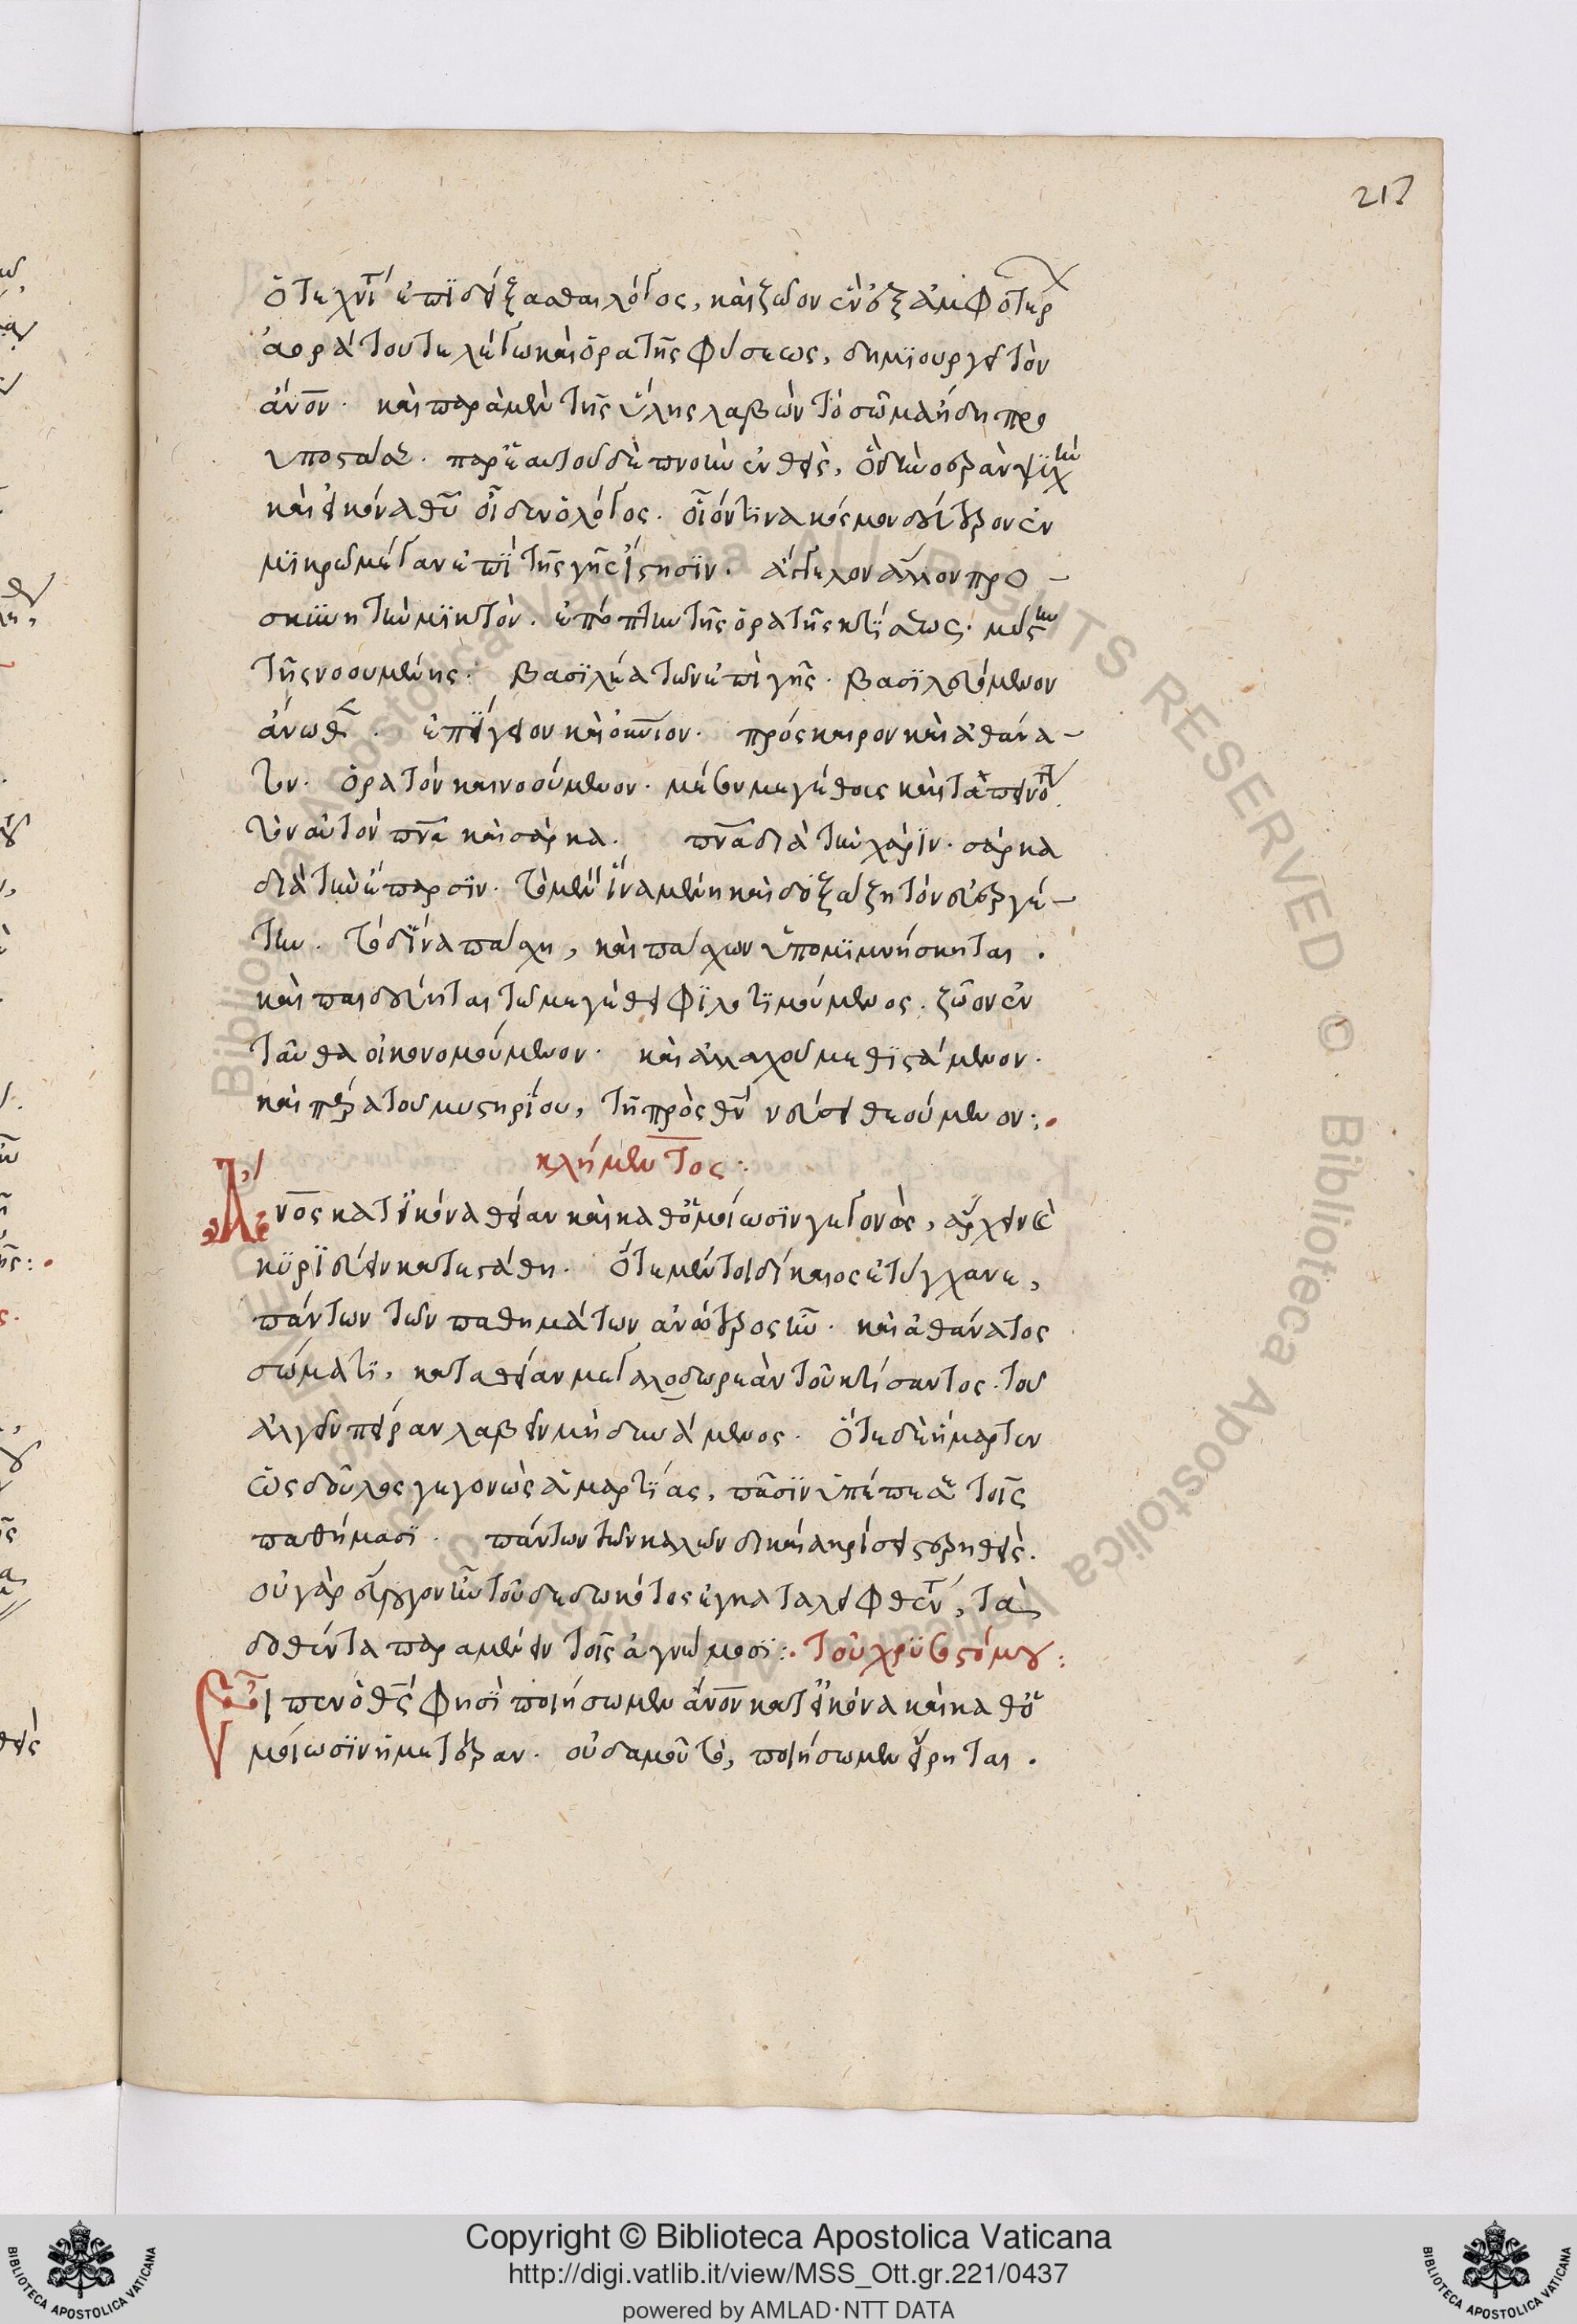 217
ὁ τεχνί(της) ἐπιδείξασθαι λόγος, καὶ ζῶον ἓν ἐξ ἀμφοτέρ(ων)
ἀοράτου τε λέγω καὶ ὁρατῆς φύσεως, δημιουργεῖ τὸν
ἄνον· καὶ παρὰ μὲν τῆς ὕλης λαβὼν τὸ σῶμα ἤδη προ
ὑποστάσης· παρ' ἑαυτοῦ δὲ πνοὴν ἐνθεὶς, ὃ δὴ νοερὰν ψυχὴν
καὶ εἰκόνα θῦ οἶδεν ὁ λόγος· οἷόν τινα κόσμον δεύτερον ἐν
μικρῷ μέγαν ἐπὶ τῆς γῆς ἵστησιν· ἄγγελον ἄλλον προ-
σκυνητὴν μικτὸν· ἐπόπτην τῆς ὁρατῆς κτίσεως· μύστην
τῆς νοουμένης· βασιλέα τῶν ἐπὶ γῆς· βασιλευόμενον
ἄνωθεν· ἐπίγειον καὶ οὐνιον· πρόσκαιρον καὶ ἀθάνα-
τον· ὁρατὸν καὶ νοούμενον· μέσον μεγέθους καὶ ταπεινότητος
τὸν αὐτὸν πνα καὶ σάρκα· πνα διὰ τὴν χάριν· σάρκα
διὰ τὴν ἔπαρσιν· τὸ μὲν ἵνα μένη καὶ δοξάζη τὸν εὐεργέ-
την· τὸ δ' ἵνα πάσχη, καὶ πάσχων ὑπομιμνήσκηται·
καὶ παιδεύηται τῷ μεγέθει φιλοτιμούμενος· ζῶον ἐν
ταῦθα οἰκονομούμενον· καὶ ἀλλαχοῦ μεθιστάμενον·
καὶ πέρας τοῦ μυστηρίου, τῇ πρὸς θν νεύσει θεούμενον:·
κλήμεντος:
Ἄνος κατ' εἰκόνα θείαν καὶ καθ' ὁμοίωσιν γεγονὼς, ἄρχειν τὲ
κυριεύειν κατεστάθη· ὅτε μέντοι δίκαιος ἐτύγχανε,
πάντων τῶν παθημάτων ἀνώτερος ἦν· καὶ ἀθάνατος
σώματι, κατὰ θείαν μεγαλοδωρεὰν τοῦ κτίσαντος· τοῦ
ἀλγεῖν πεῖραν λαβεῖν μὴ δυνάμενος· ὅτε δὲ ἥμαρτεν
ὡς δοῦλος γεγονὼς ἁμαρτίας, πᾶσιν ὑπέπεσε τοῖς
παθήμασι· πάντων τῶν καλῶν δικαία κρίσει στερηθεὶς·
οὐ γὰρ εὔλογον ἦν τοῦ δεδωκότος ἐγκαταλειφθέντ(ος), τὰ
δοθέντα παραμένειν τοῖς ἀγνώμοσι:· τοῦ χρυσοστόμου:
Εἶπεν ὁ θς φησὶ ποιήσωμεν ἄνον κατ' εἰκόνα καὶ καθ' ὁ
μοίωσιν ἡμετέραν· οὐδαμοῦ τὸ, ποιήσωμεν εἴρηται·
Copyright © Biblioteca Apostolica Vaticana
http://digi.vatlib.it/view/MSS_Ott.gr.221/0437
powered by AMLAD·NTT DATA